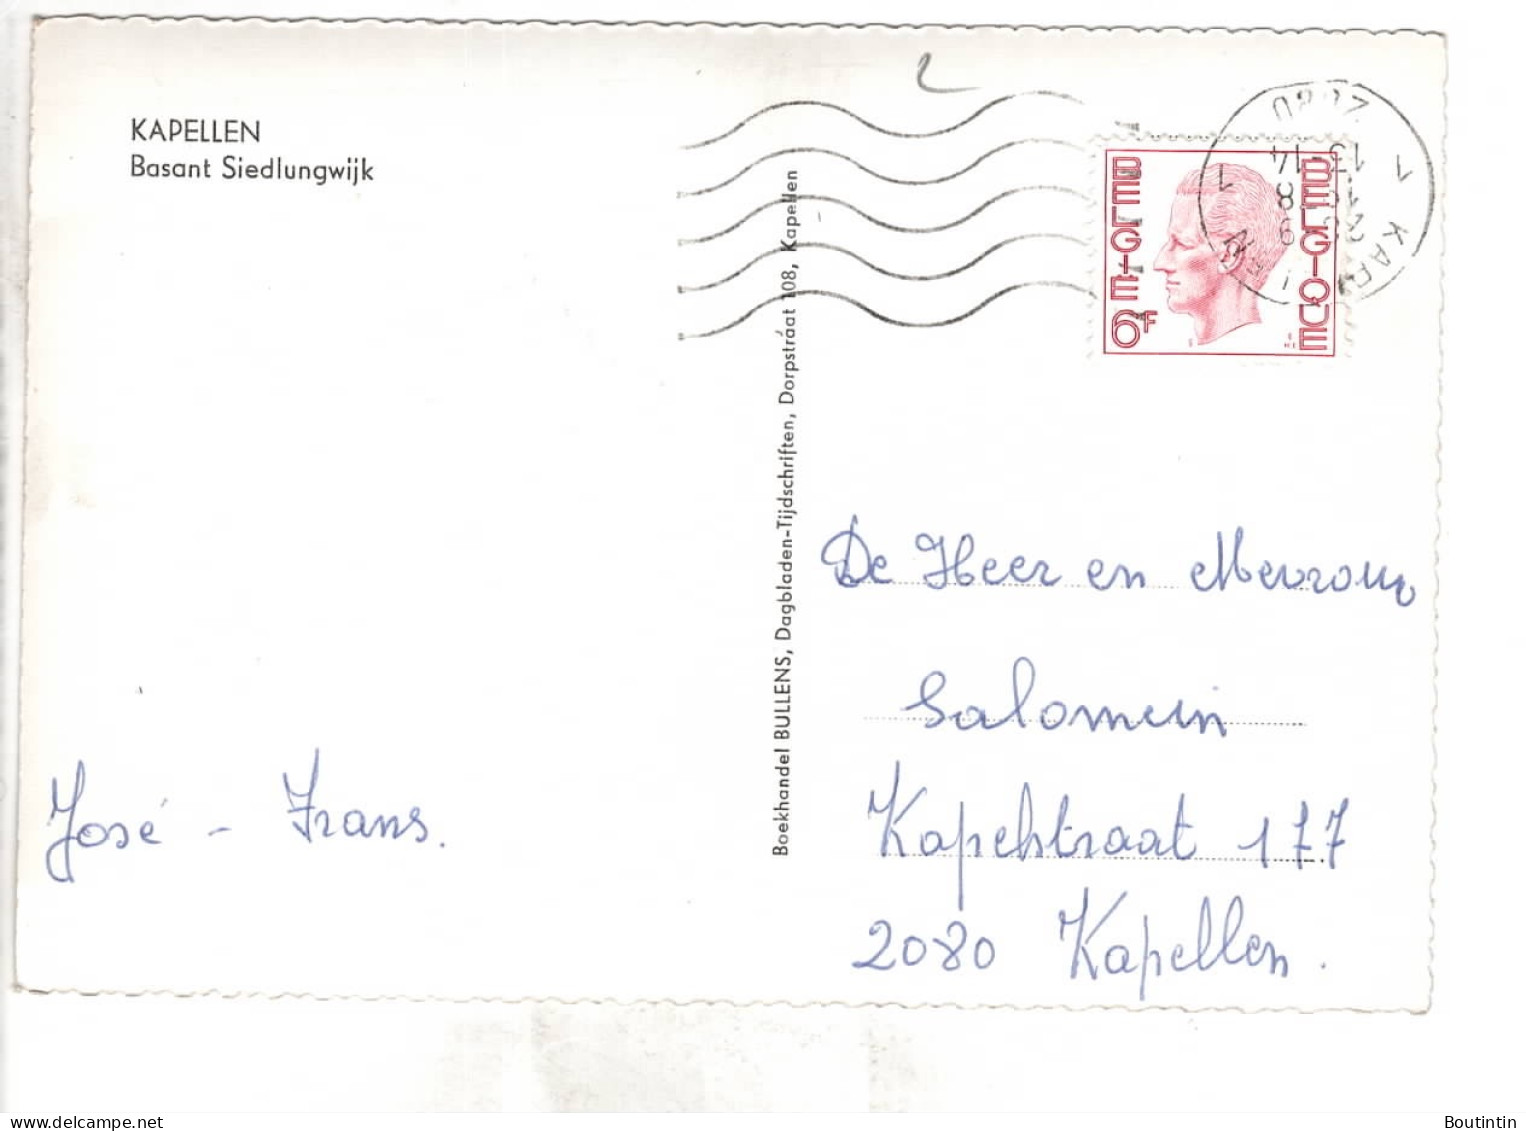 KAPELLEN
Basant Siedlungwijk
José - Frans.
Boekhandel BULLENS, Dagbladen-Tijdschriften, Dorpstraat 108, Kapellen
BELGIE
6F
BELGIQUE
2080
13-14
1
De Heer en Mevrouw
Salomein
Kapelstraat 177
2080 Kapellen.
Boutintin